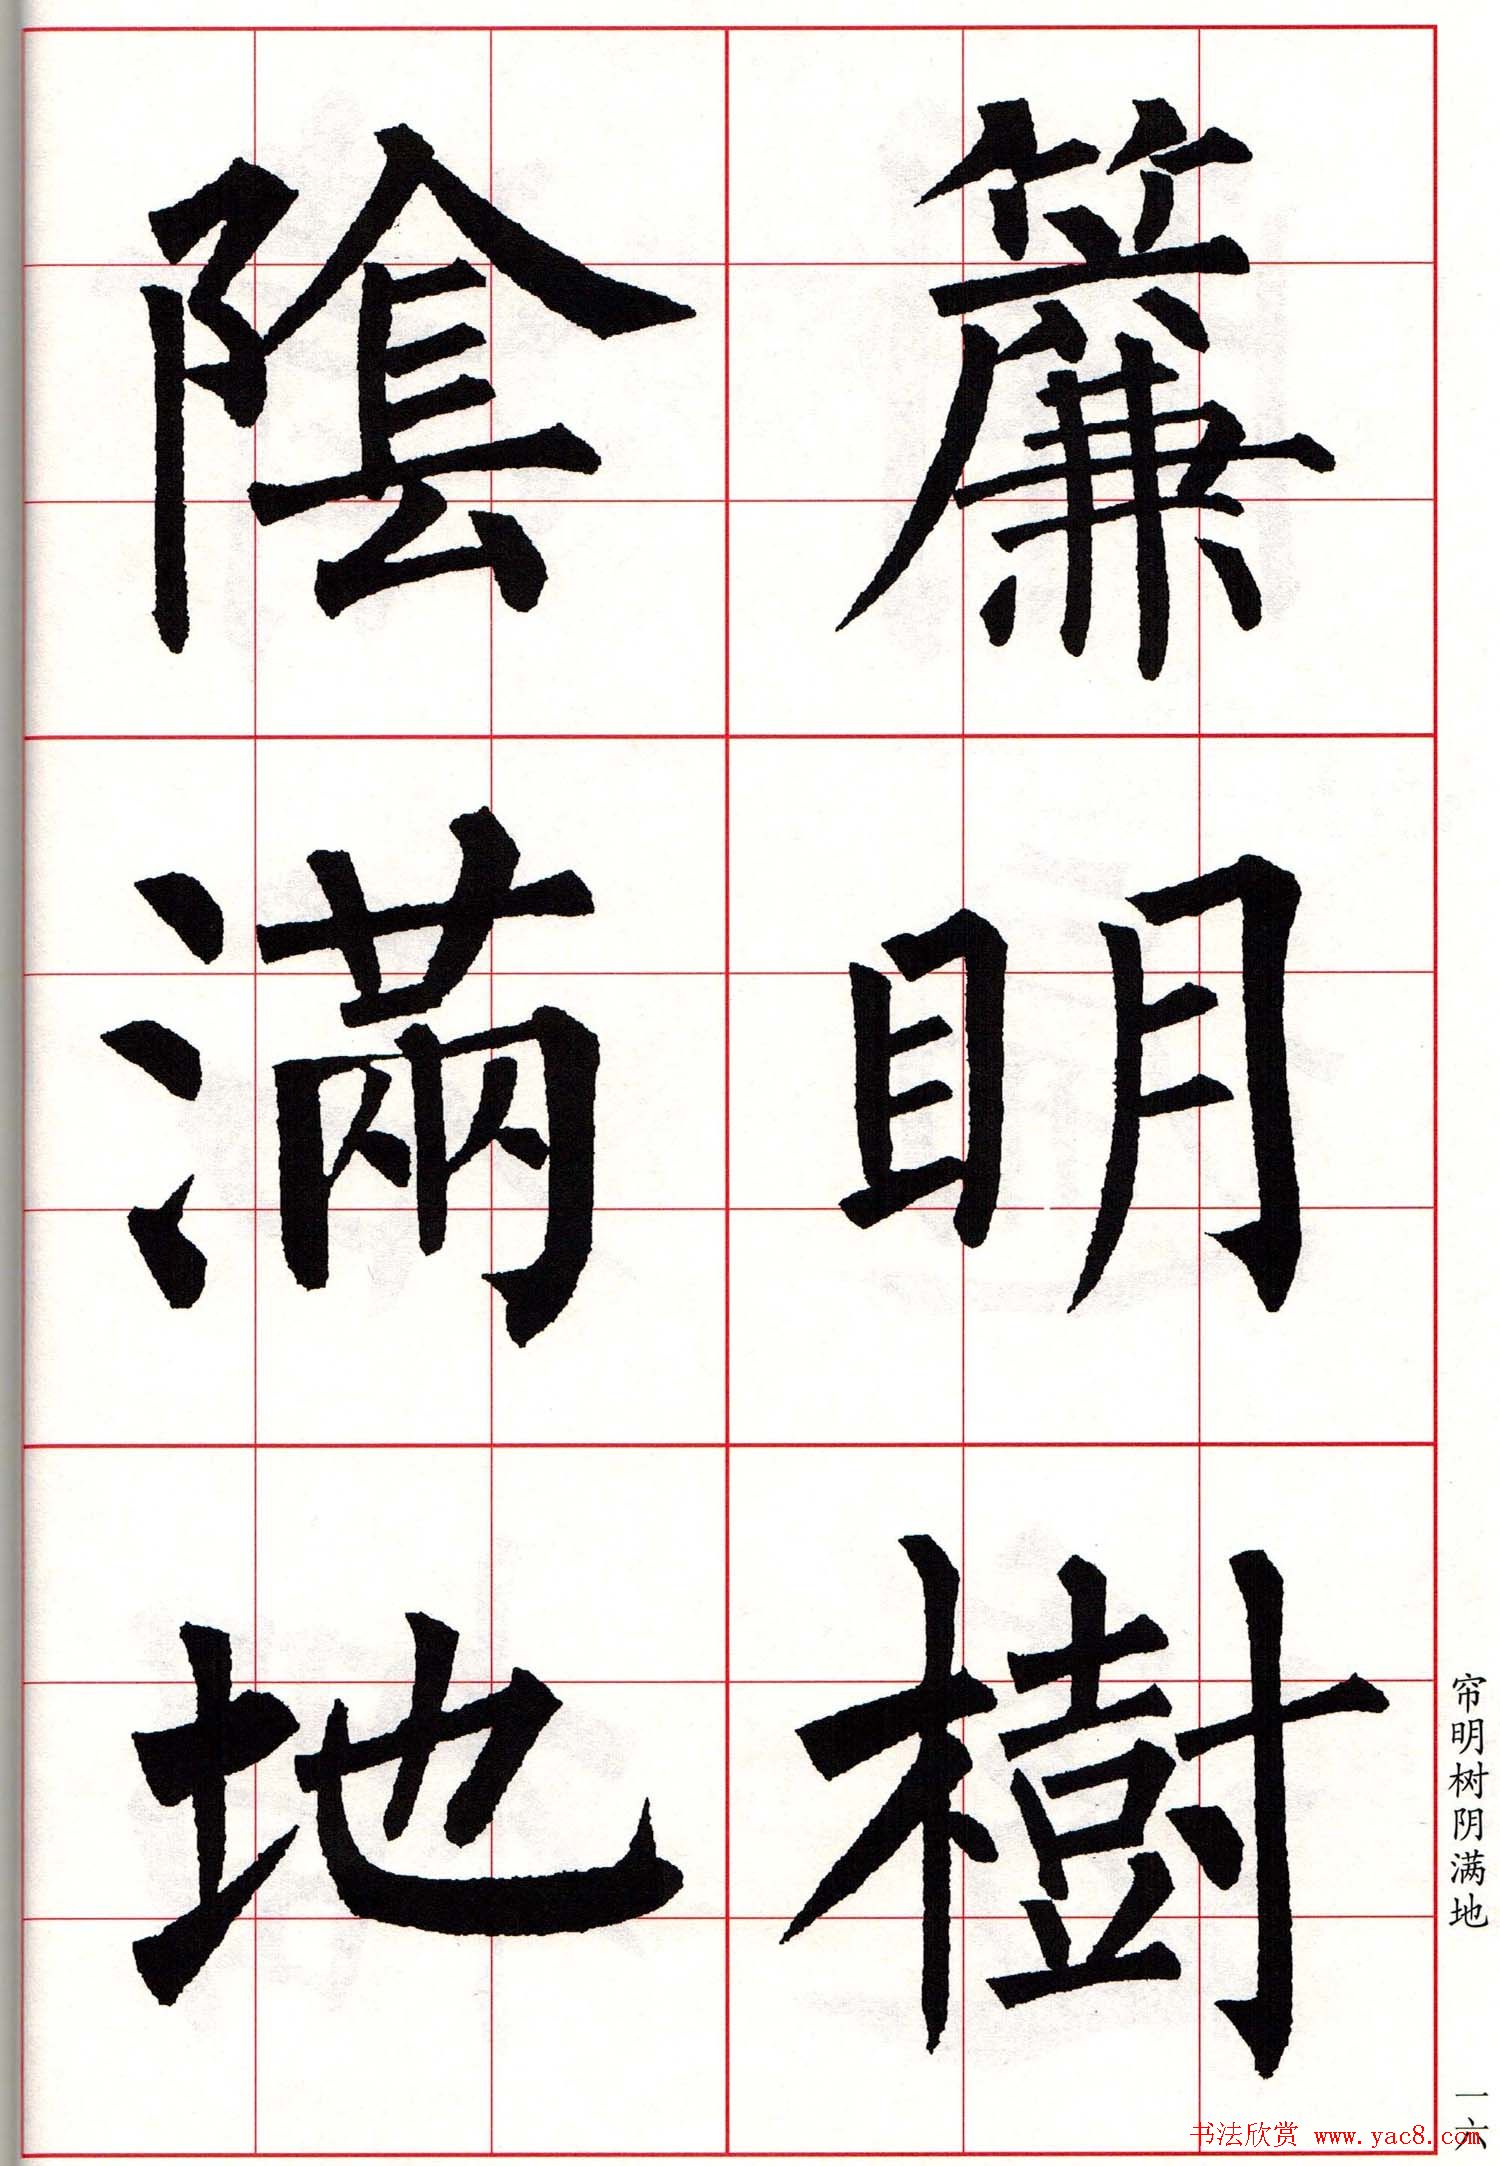 簾明樹
陰滿地
帘明树阴满地
一六
书法欣赏 www.yac8.com